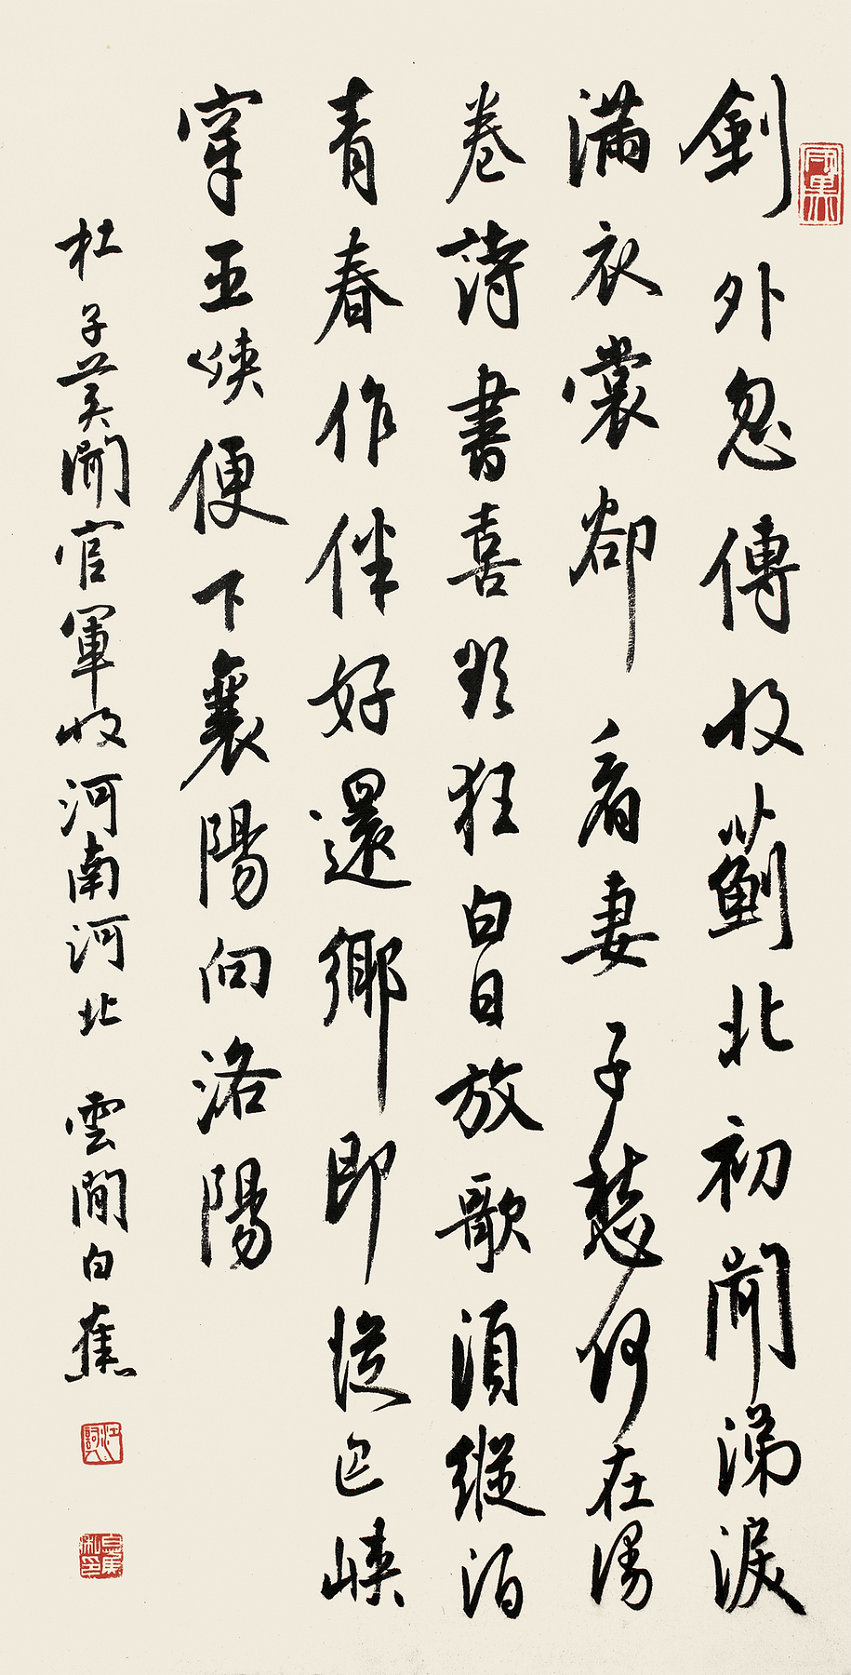 劍外忽傳收薊北初聞涕淚
滿衣裳卻看妻子愁何在漫
卷詩書喜欲狂白日放歌須縱酒
青春作伴好還鄉即從巴峽
穿巫峽便下襄陽向洛陽
杜子美聞官軍收河南河北 雲間白蕉
白蕉私印